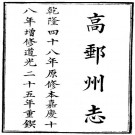 高郵州志
乾隆四十八年原修本嘉慶十
八年增修道光二十五年重鋟